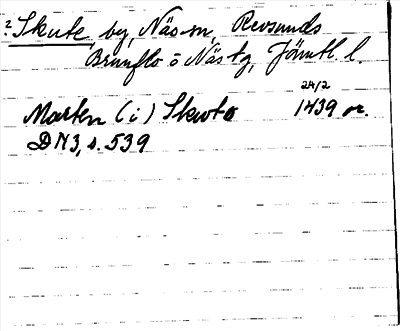 ? Skute, by, Näs sn, Revsunds
Brunflo o Näs tg, Jämtl. l.
24/2
Marten (i) Skuto 1439 or.
DN3, s. 539